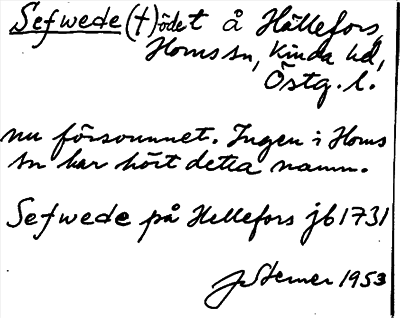 Sefwede (t) ödet å Hällefors,
Horns sn, Kinda hd,
Östg. l.
nu försvunnet. Ingen i Horns
sn har hört detta namn.
Sefwede på Hellefors jb 1731
Sterner 1953